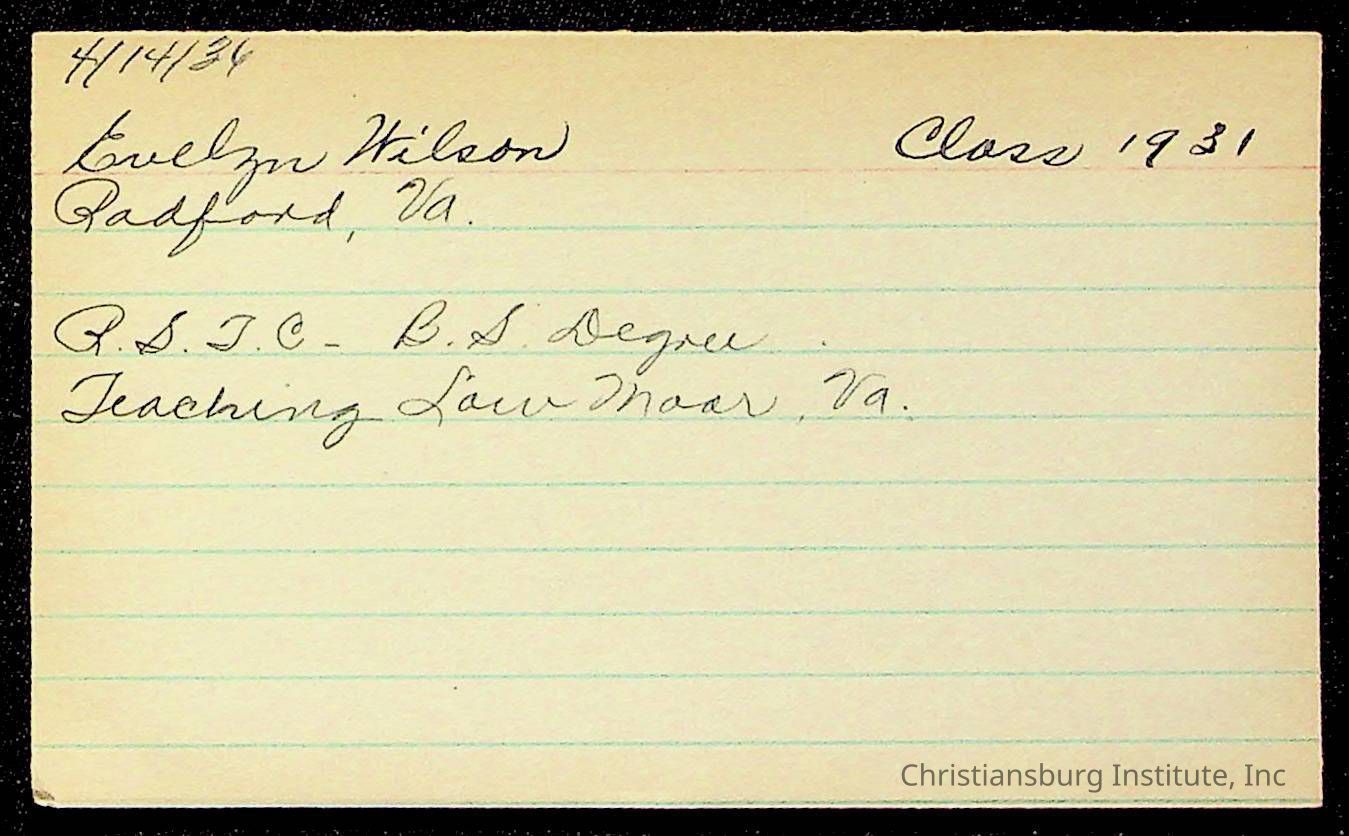 4/14/36
Evelyn Wilson Class 1931
Radford, Va.
R.S.T.C - B.S. Degree
Teaching Low Moor, Va.
Christiansburg Institute, Inc